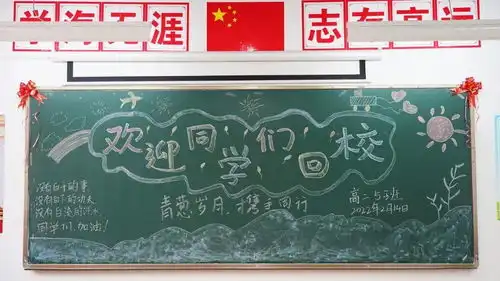 学海无涯
志存高远
欢迎同学们回校
没有白干的事
没有白下的功夫
没有白流的汗水
同学们,加油!
青葱岁月,携手同行
高一5班
2022年2月14日